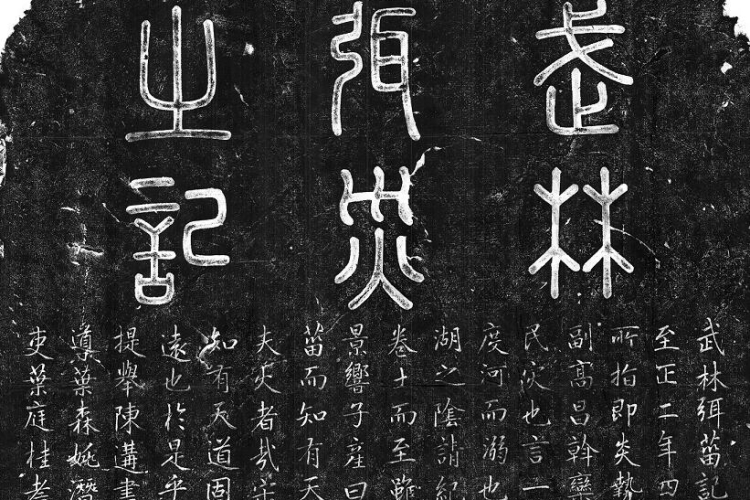 武林
弭災
之記
武林弭菑記
至正二年四
所指即炎熱
副高昌幹欒
民災也言一
度河而溺也
湖之陰請紀
卷土而至雖
景響子產曰
菑而知有天
夫災者哉
知有天道固
遠也於是乎
提舉陳遘書
導葉森姚濬
吏葉庭桂孝